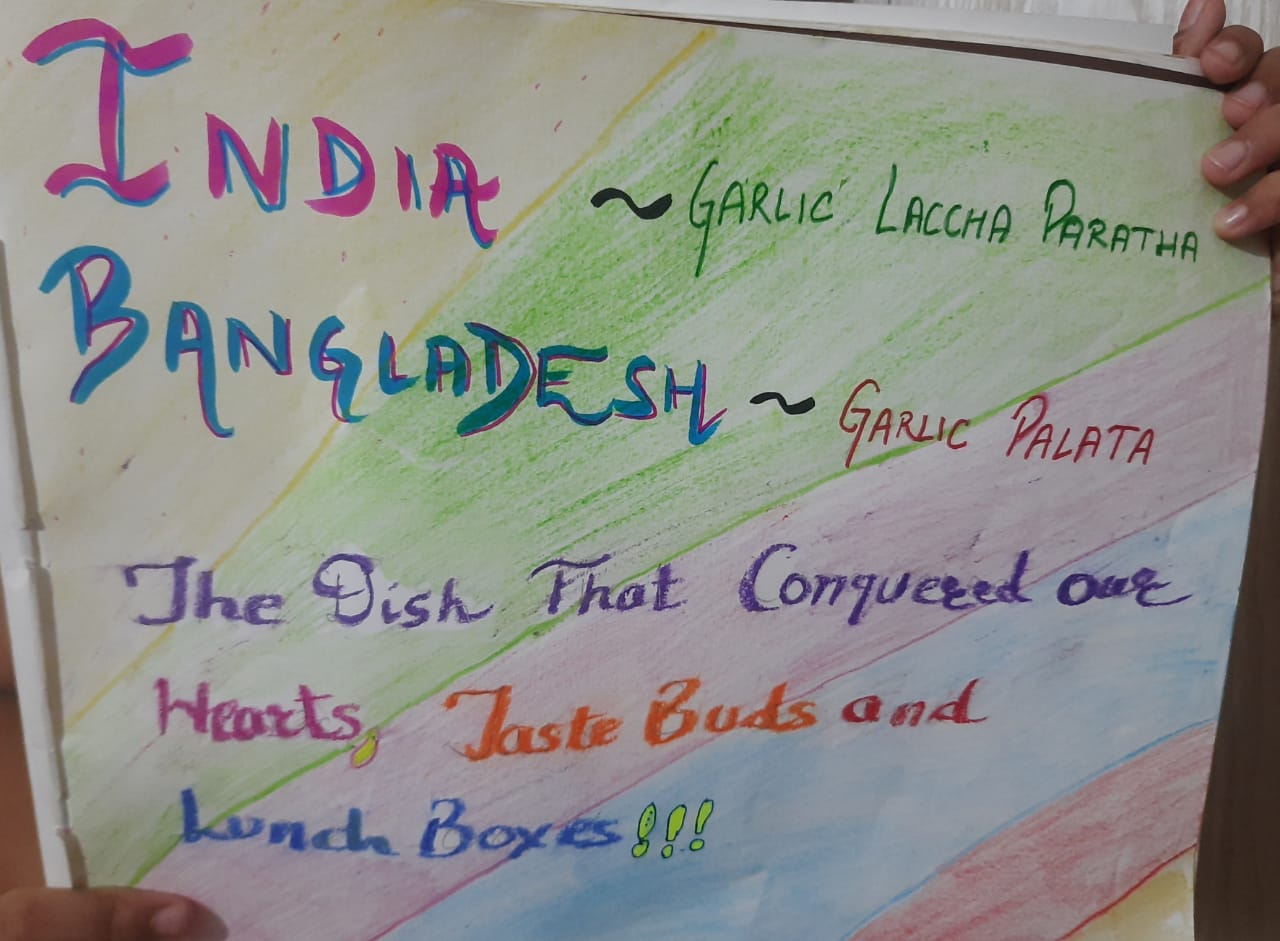 INDIA ~ GARLIC LACCHA PARATHA
BANGLADESH ~ GARLIC PALATA
The Dish That Conquered our
Hearts, Taste Buds and
Lunch Boxes!!!